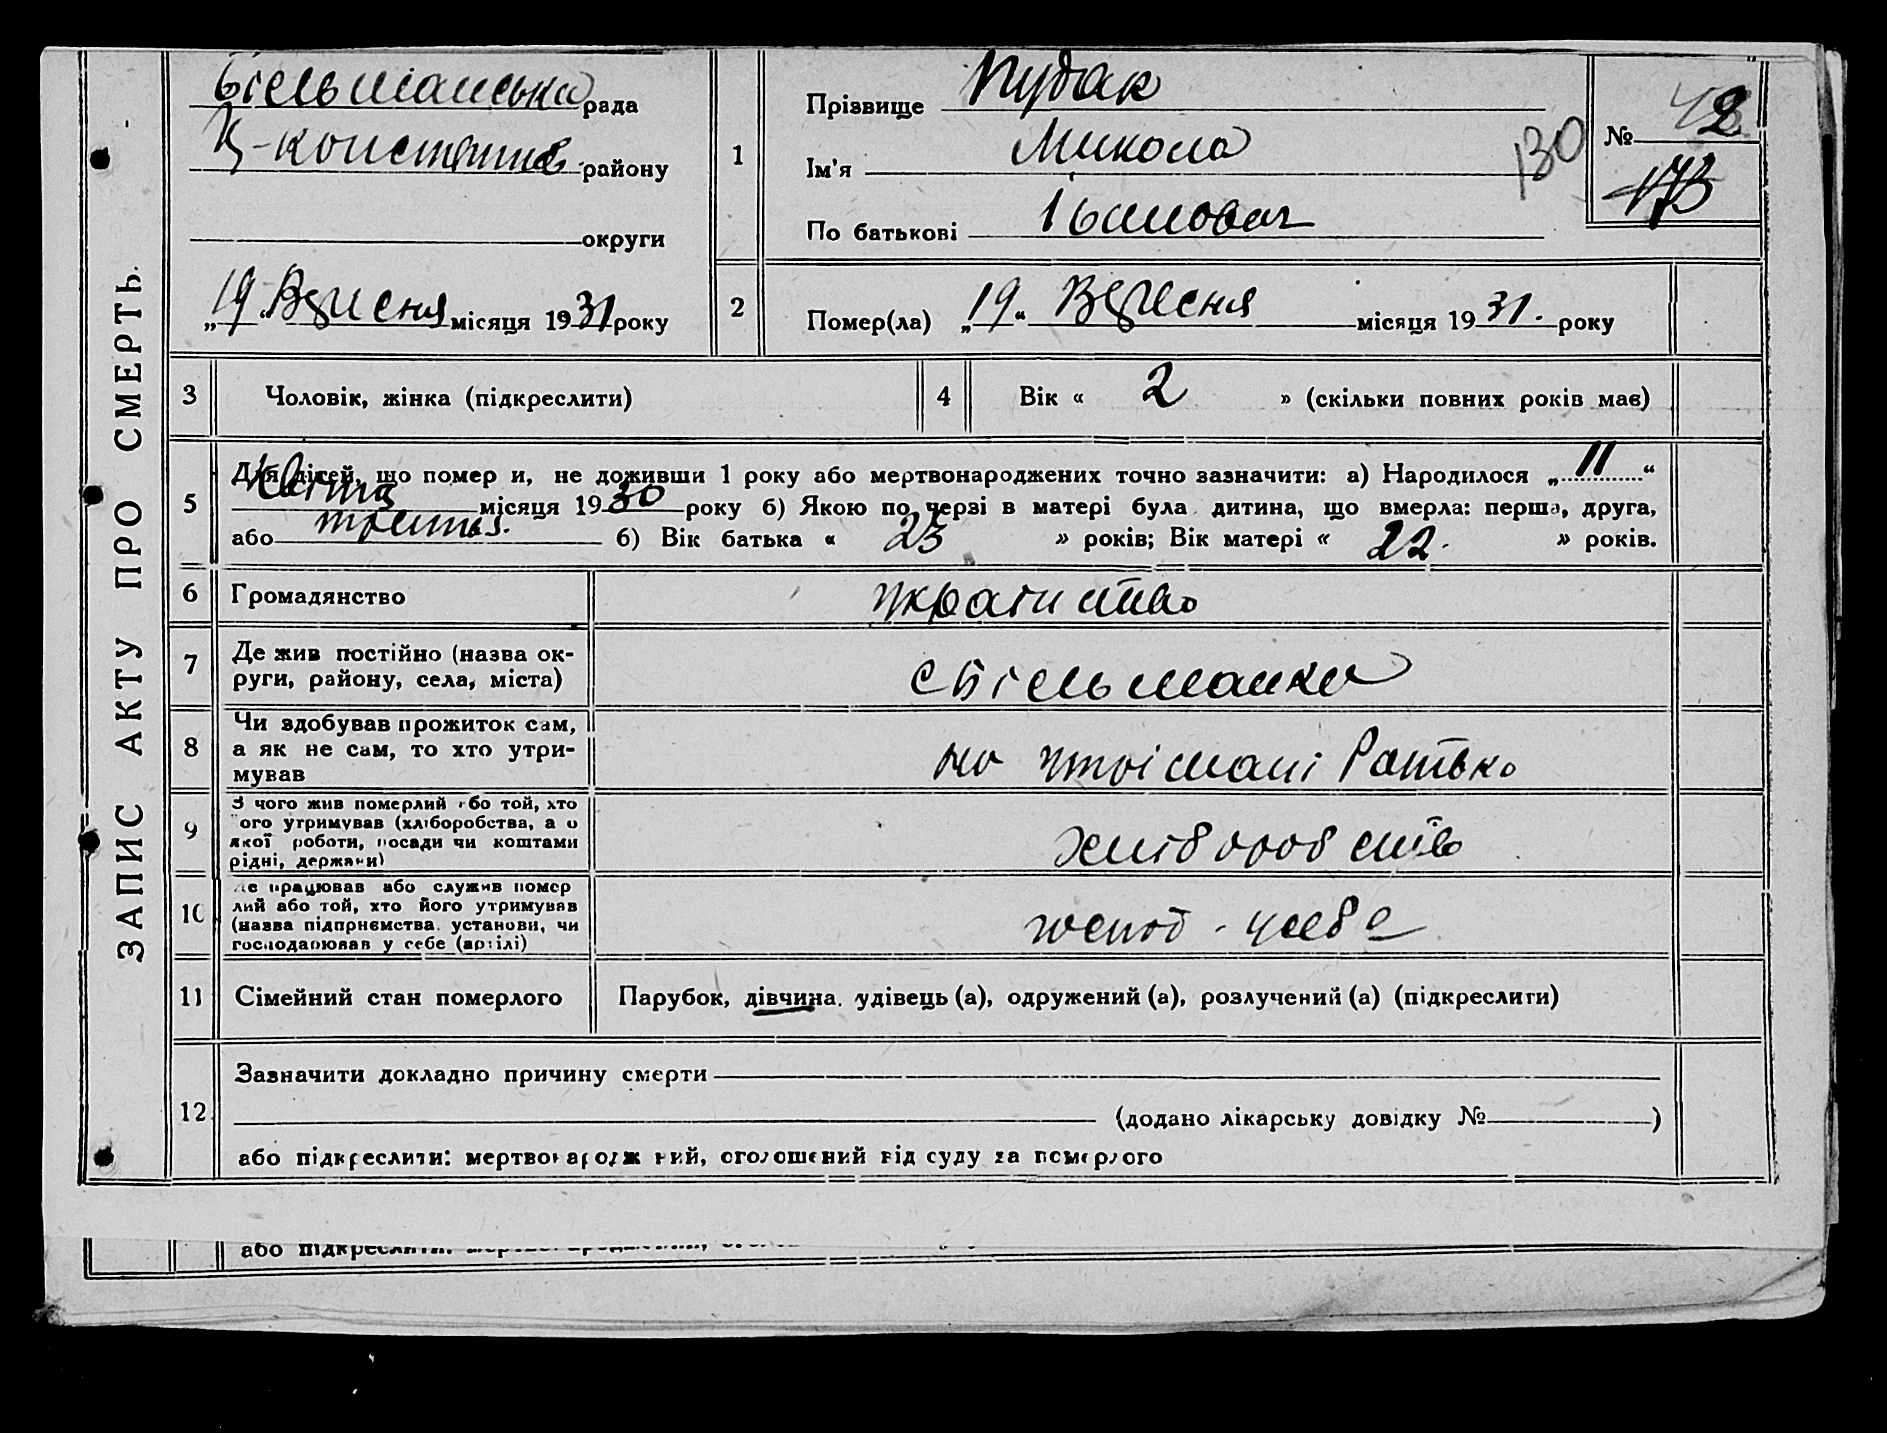 ЗАПИС АКТУ ПРО СМЕРТЬ.
Більманська рада
Ц-констянтив. району
округи
„19“ Вересня місяця 1931 року
1
Прізвище Пудак
Ім'я Микола
По батькові Іванович
130
№ 2
173
2
Помер(ла) „19“ Вересня місяця 1931. року
3 Чоловік, жінка (підкреслити)
4 Вік « 2 » (скільки повних років має)
5 Для дітей, що помер и, не доживши 1 року або мертвонароджених точно зазначити: а) Народилося „11“
Квітня місяця 1930 року б) Якою по черзі в матері була дитина, що вмерла: перша, друга,
або третья. б) Вік батька « 23 » років; Вік матері « 22. » років.
6 Громадянство
7 Де жив постійно (назва ок-
руги, району, села, міста)
с Більманка
8 Чи здобував прожиток сам,
а як не сам, то хто утри-
мував
на утрімані Батько
9 З чого жив померлий або той, хто
його утримував (хліборобства, а о
якої роботи, посади чи коштами
рідні, держави)
хлібороб ство
10 Де працював або служив помер
лий або той, хто його утримував
(назва підприємства, установи, чи
господарював у себе (артілі)
господ - у себе
11 Сімейний стан померлого Парубок, дівчина, удівець (а), одружений (а), розлучений (а) (підкреслити)
12 Зазначити докладно причину смерти
(додано лікарську довідку № )
або підкреслити: мертвонароджений, оголошений від суду за померлого
або підкреслити: